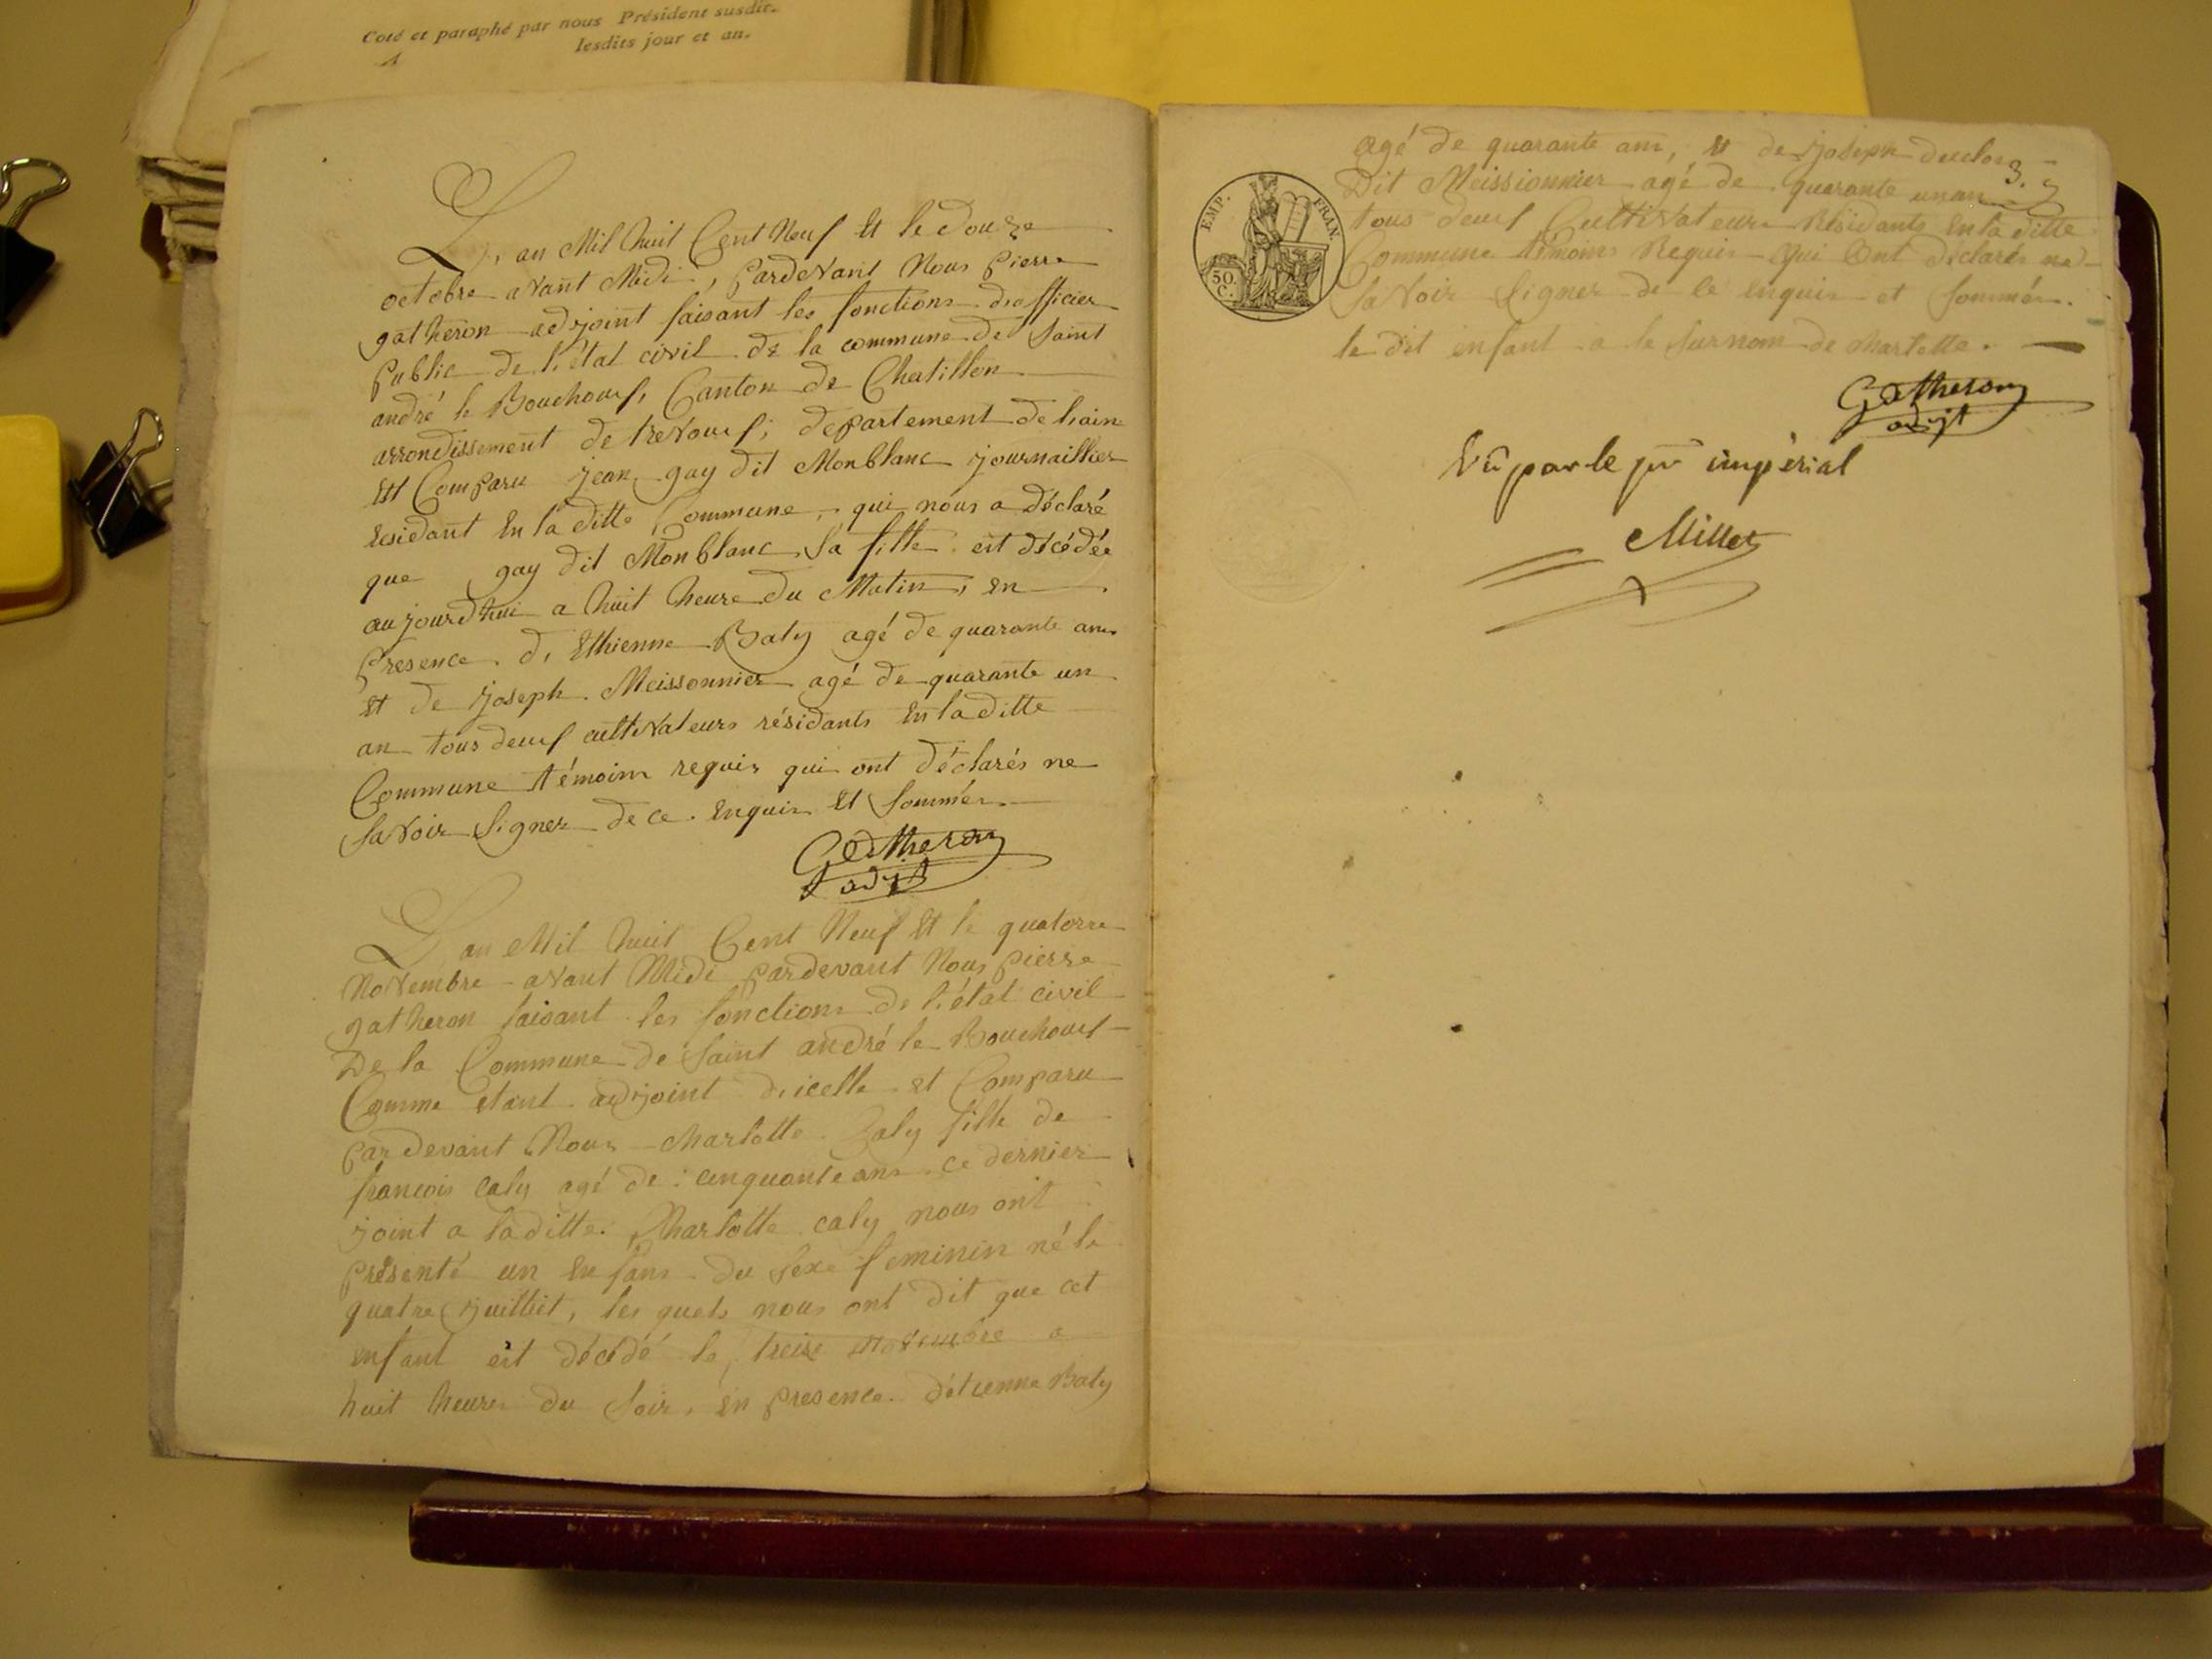 Coté et paraphé par nous Président susdit.
lesdits jour et an.
L'an Mil huit Cent Neuf Et le Douze
octobre avant Midi, Pardevant Nous Pierre
gatheron adjoint faisant les fonctions d'officier
Public de l'état civil de la commune de Saint
andré le Bouchoux, Canton de Chatillon
arrondissement de trevoux, departement de l'ain
Est Comparu jean gay dit Monblanc journaillier
residant En la ditte Commune, qui nous a déclaré
que gay dit Monblanc Sa fille est décédée
aujourd'hui a huit heure du Matin, en
Presence d'Ethienne Baty agé de quarante ans
Et de joseph Meissonnier agé de quarante un
an tous deux cultivateurs résidants En la ditte
Commune témoins requis qui ont déclarés ne
Savoir Signer de ce Enquis Et Sommés
Gatheron
adjt
L'an Mil huit Cent Neuf Et le quatorze
Novembre avant Midi Pardevant Nous Pierre
gatheron faisant les fonctions de l'état civil
De la Commune de Saint andré le Bouchoux
Comme étant adjoint d'icelle et Comparu
Pardevant Nous Charlotte Caly fille de
françois Caly agé de cinquante ans ce dernier
joint a laditte Charlotte Caly nous ont
Présenté un Enfans du Sexe feminin né le
quatre juilliet, les quels nous ont dit que cet
enfant est décédé le treize novembre a
huit heures du Soir, En presence d'étienne Baty
3.
agé de quarante ans, Et de joseph
Dit Meissionnier agé de quarante un an
tous deux Cultivateurs Résidants En la ditte
Commune témoins Requis qui Ont déclarés ne
Savoir Signer de ce enquis et Sommés.
le dit enfant a le Surnom de Charlotte.
Gatheron
adjt
EMP. FRAN.
50 C.
Vû par le pr impérial
Millet